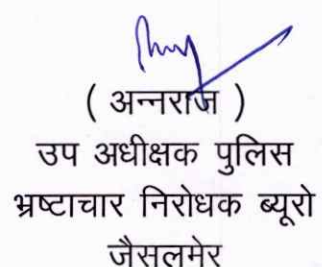 ( अन्नराज )
उप अधीक्षक पुलिस
भ्रष्टाचार निरोधक ब्यूरो
जैसलमेर